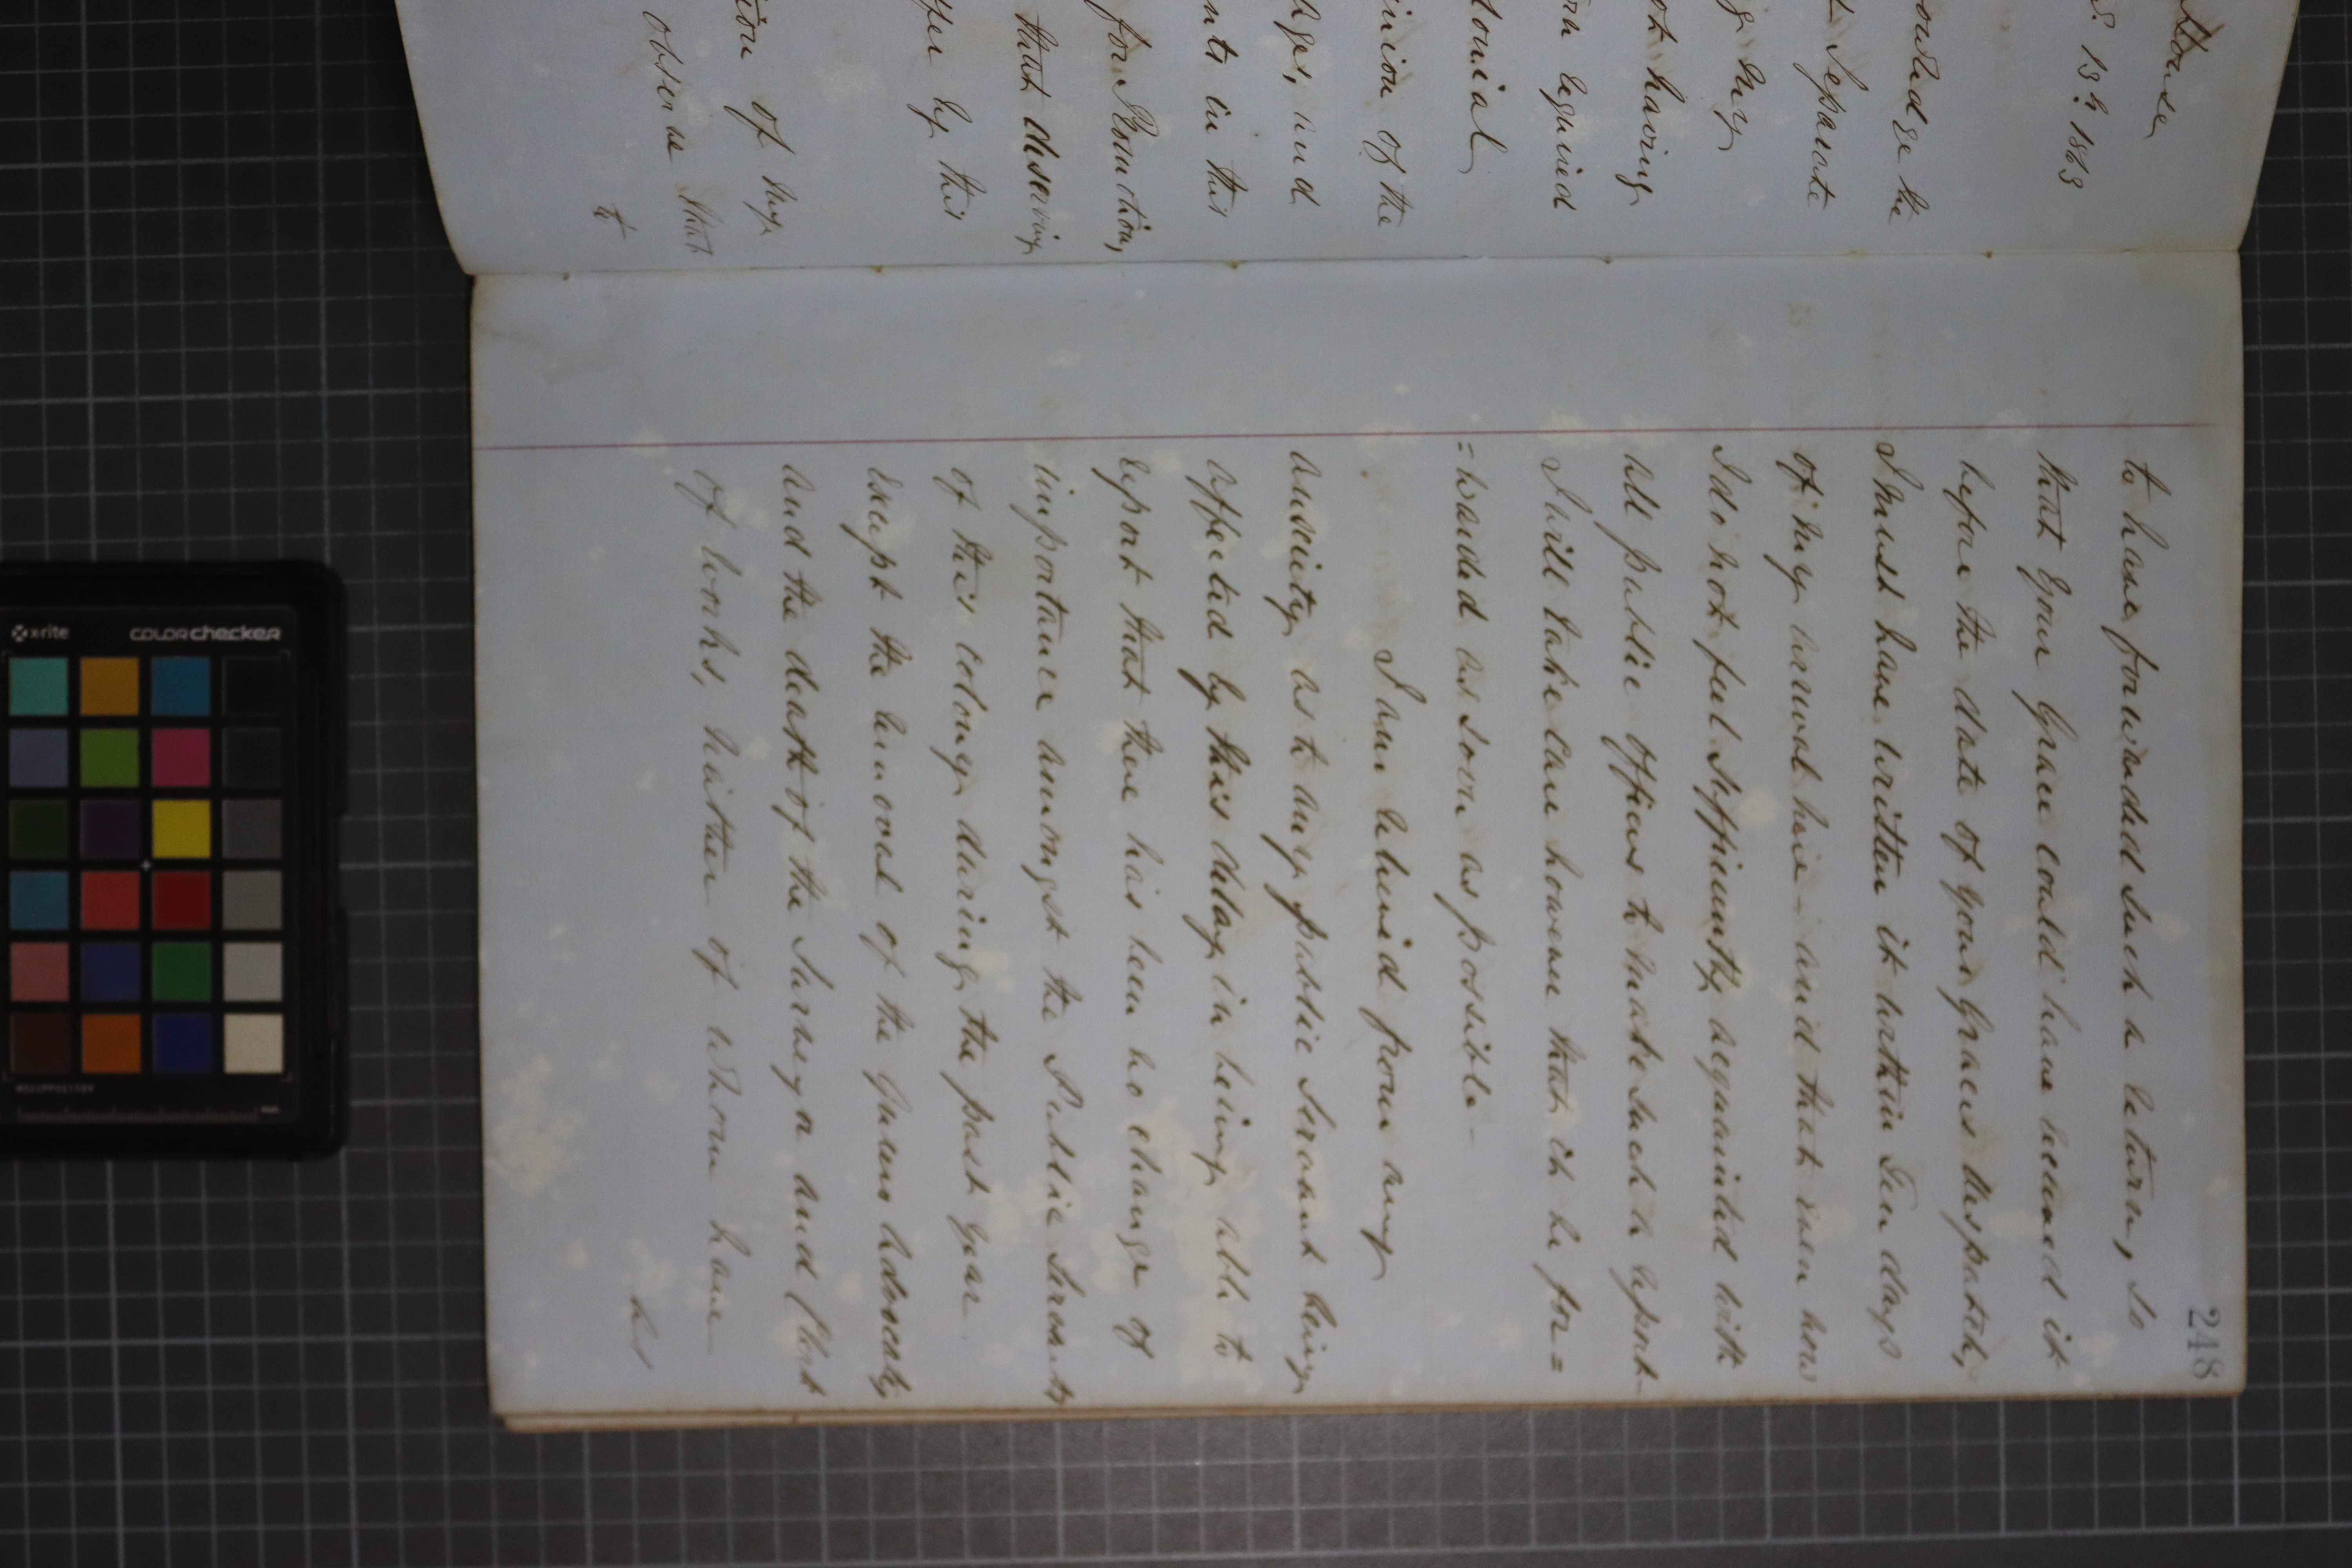 House
13th 1863
the
Separate
my
having
required
the
and
in this
for Promotion,
that deserving
by this
of my
observe that
to
248
to have forwarded such a return, so
that Your Grace could have received it
before the date of Your Graces Despatch,
I must have written it within Ten days
of my arrival here – and that even now
I do not feel sufficiently acquainted with
all public officers to make such a report –
I will take care however that it be for=
=warded as soon as possible –
I am relieved from any
anxiety as to any public Servant being
affected by this delay, in being able to
report that there has been no change of
importance amongst the Public Servants
of this colony during the past year
except the removal of the Queens Advocate,
and the death of the Surveyor and Clerk
of Works, neither of whom have
had
x-rite
colorchecker